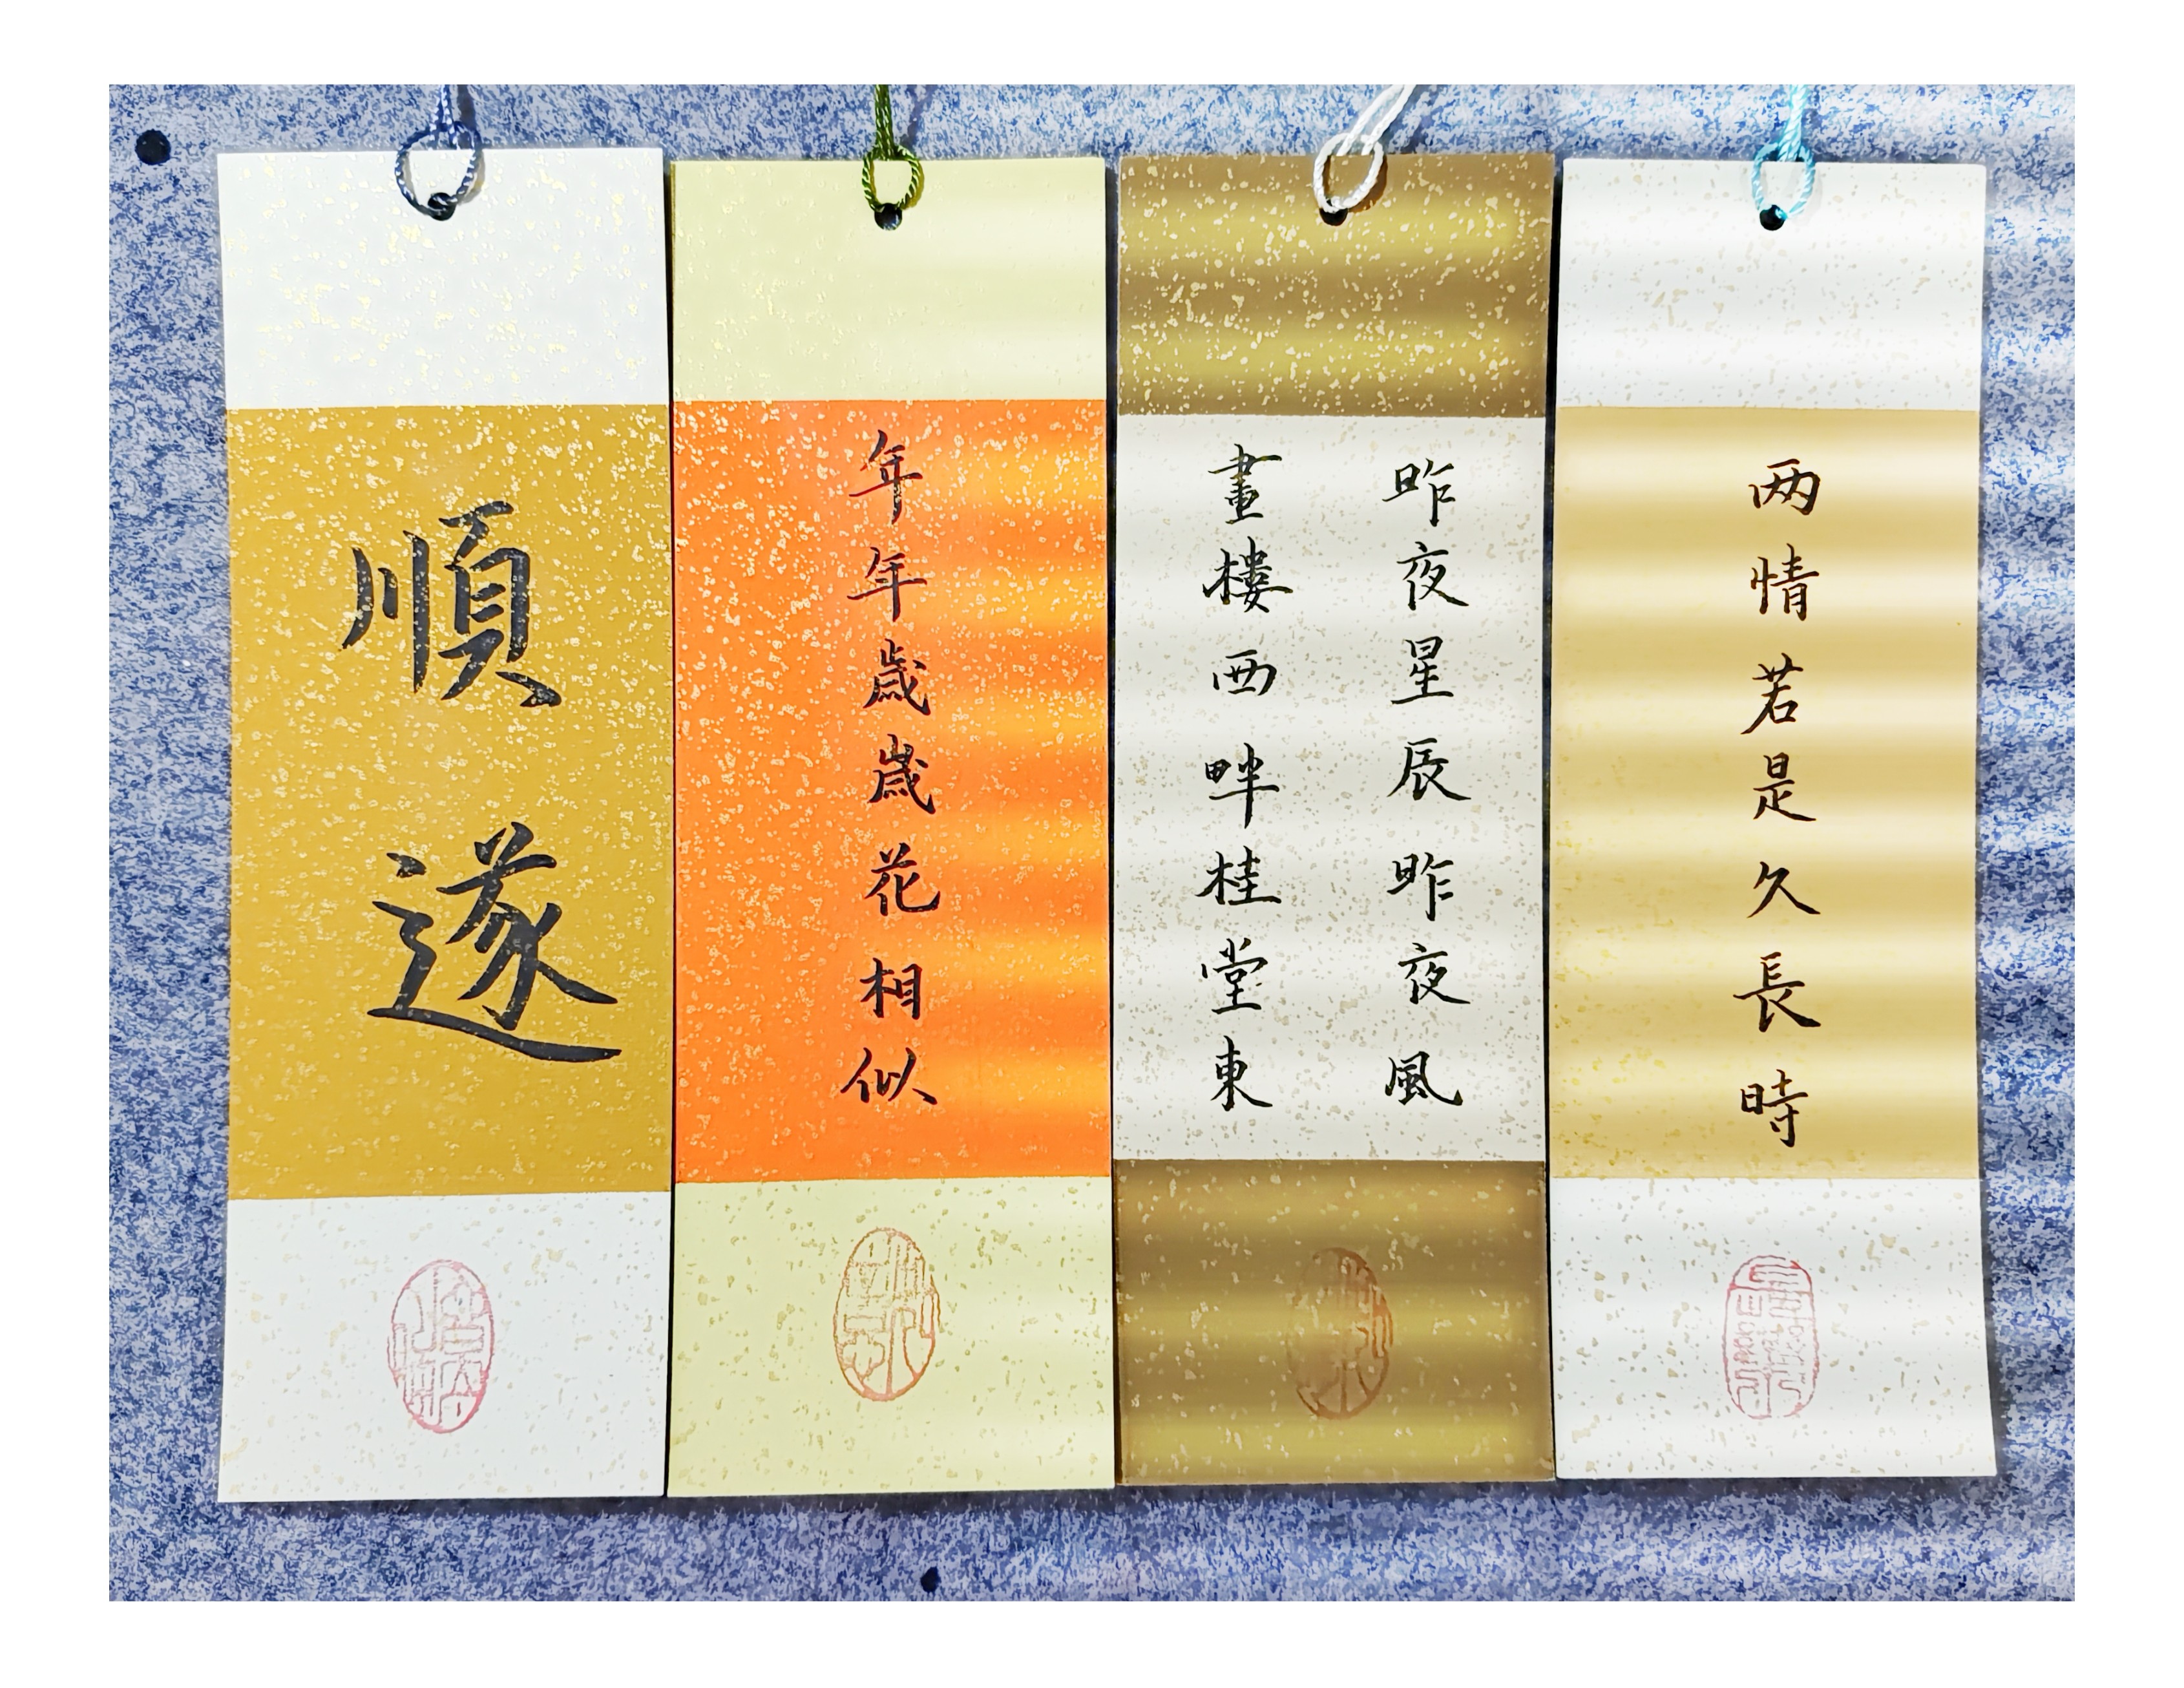 順遂
年年歲歲花相似
昨夜星辰昨夜風
畫樓西畔桂堂東
两情若是久長時